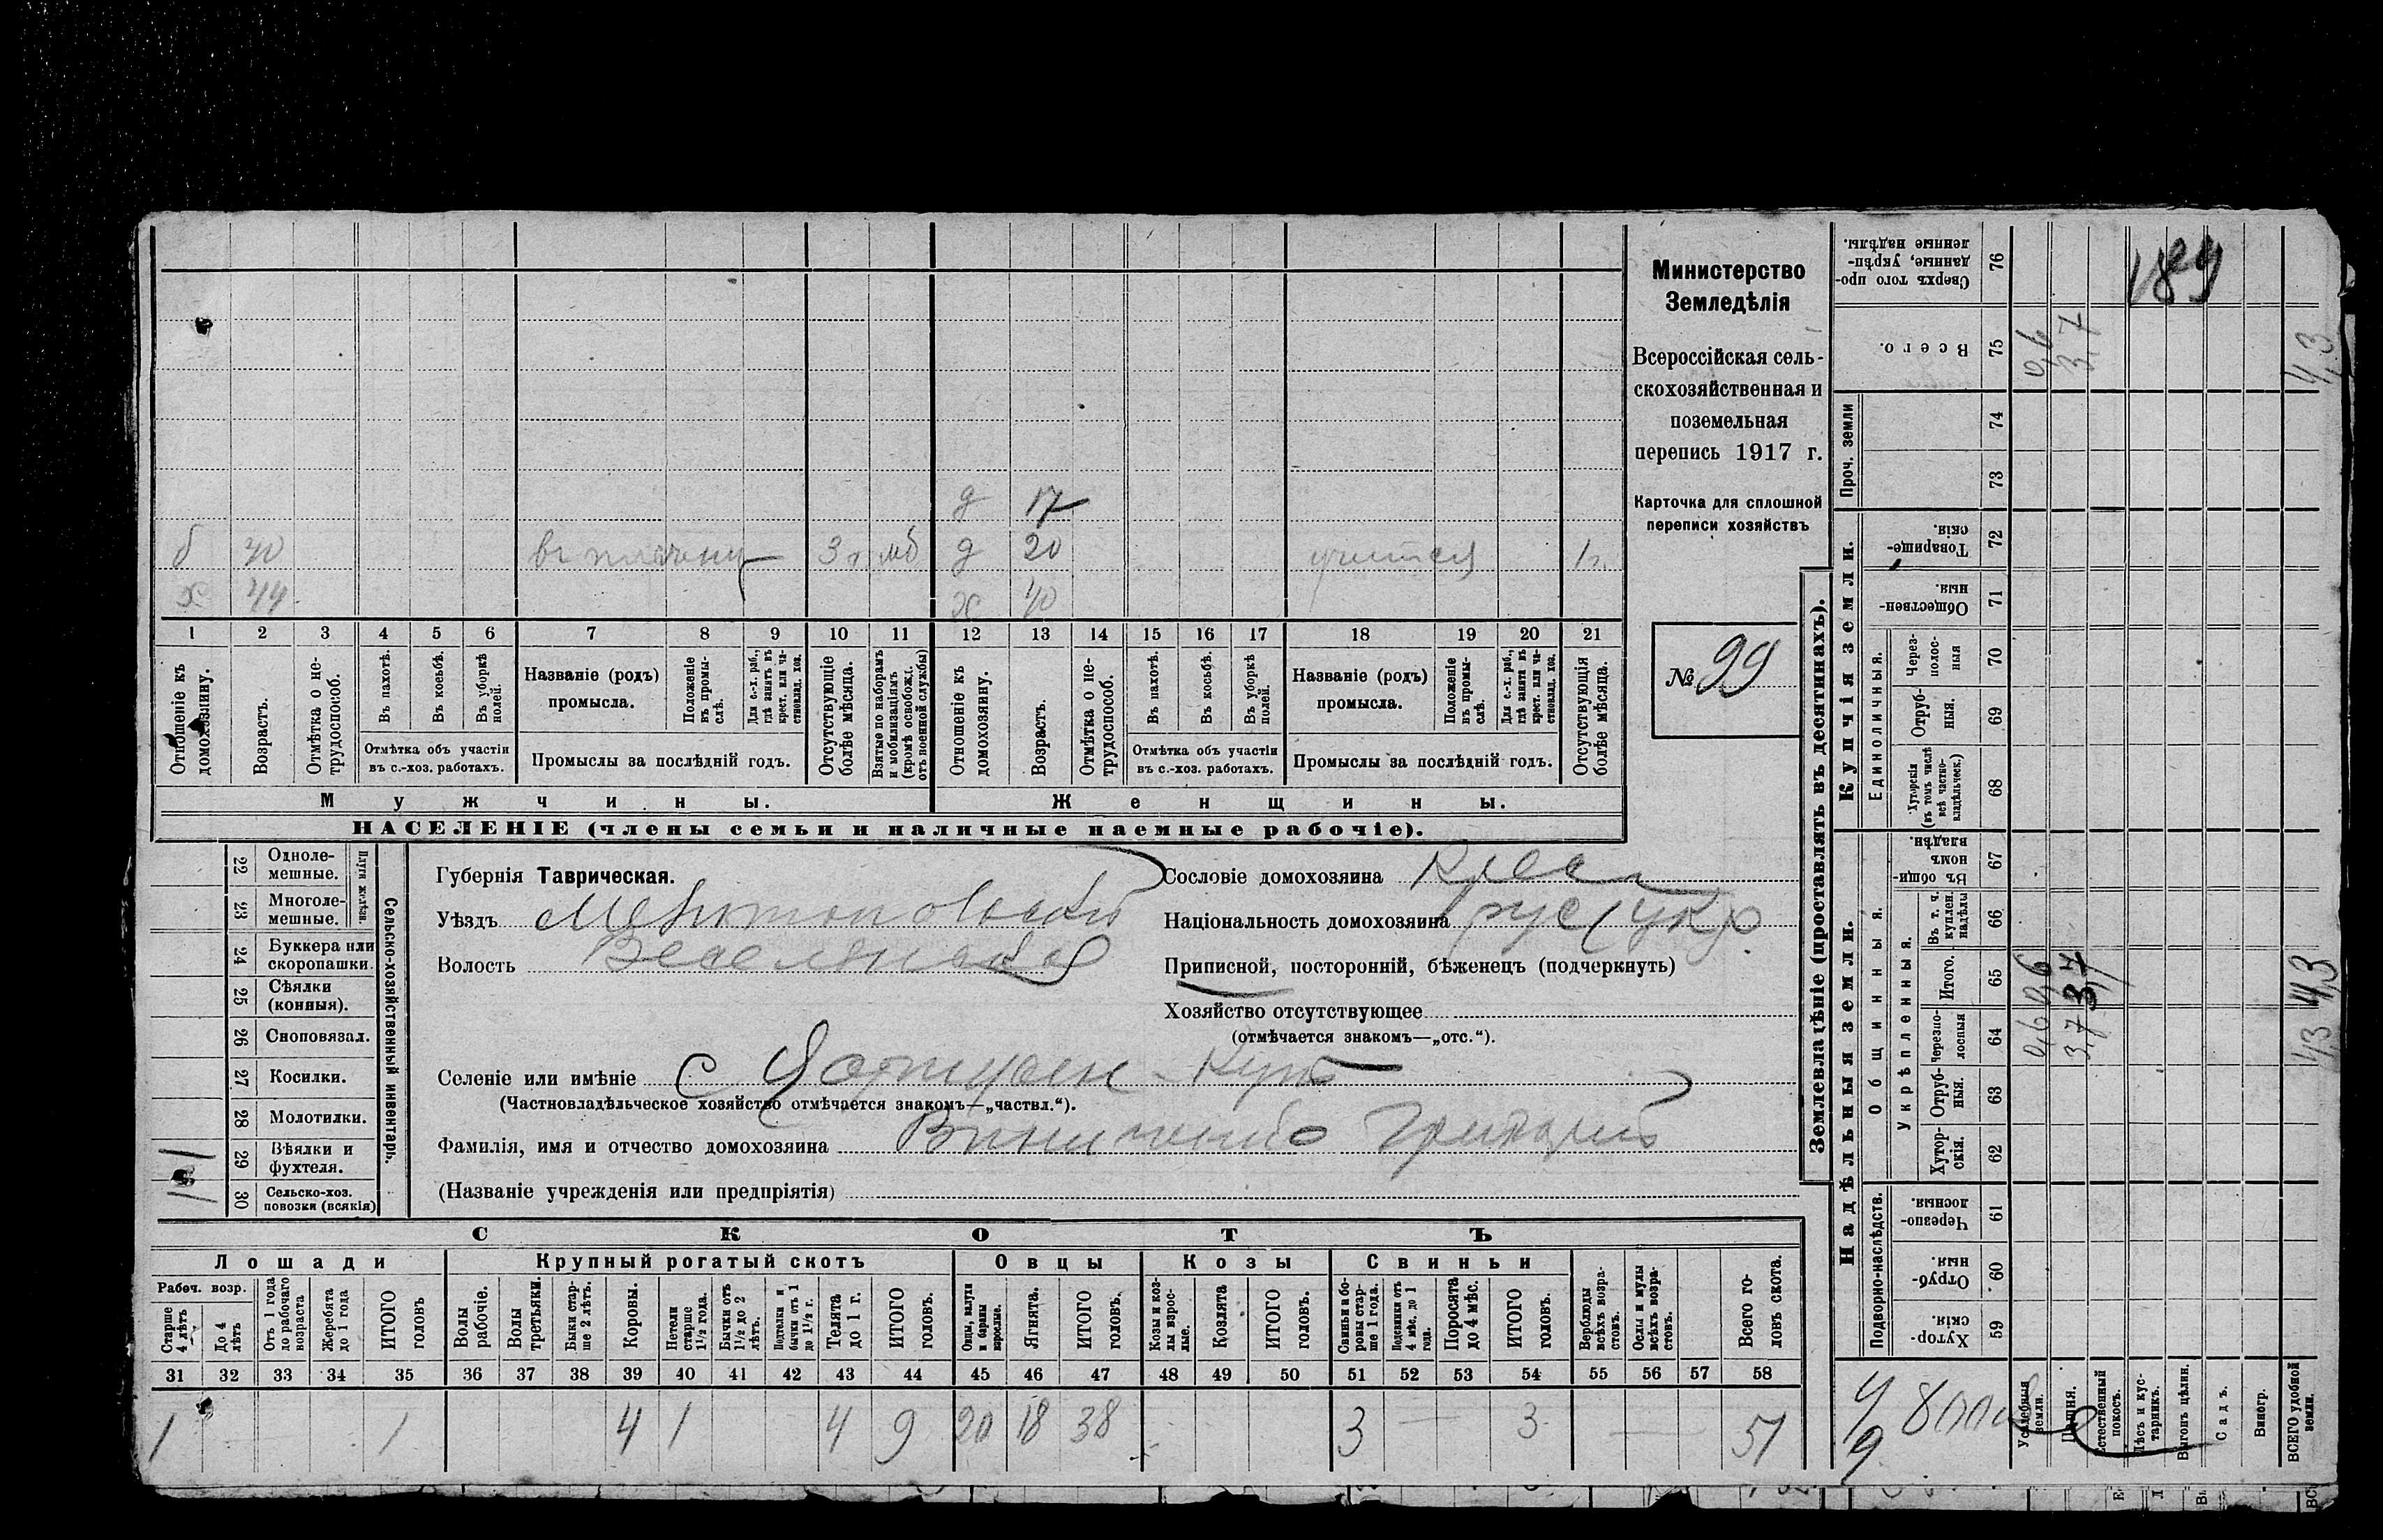 Министерство
Земледѣлія
Всероссійская сель-
скохозяйственная и
поземельная
перепись 1917 г.
Карточка для сплошной
переписи хозяйствъ
№ 99
д 17
б 40 въ плѣну 3 г мб д 20 учится 1 г.
х 44 х 40
1 2 3 4 5 6 7 8 9 10 11 12 13 14 15 16 17 18 19 20 21
Отношеніе къ домохозяину.
Возрастъ.
Отмѣтка о не-трудоспособ.
Въ пахотѣ.
Въ косьбѣ.
Въ уборкѣ полей.
Отмѣтка объ участіи въ с.-хоз. работахъ.
Названіе (родъ) промысла.
Положеніе въ промы-слѣ.
Для с.-х. раб., гдѣ занятъ въ крест. или ча-стновлад. хоз.
Промыслы за послѣдній годъ.
Отсутствующіе болѣе мѣсяца.
Взятые по наборамъ и мобилизаціямъ (кромѣ освобожд. отъ военной службы)
Отношеніе къ домохозяину.
Возрастъ.
Отмѣтка о не-трудоспособ.
Въ пахотѣ.
Въ косьбѣ.
Въ уборкѣ полей.
Отмѣтка объ участіи въ с.-хоз. работахъ.
Названіе (родъ) промысла.
Положеніе въ промы-слѣ.
Для с.-х. раб., гдѣ занята въ крест. или ча-стновлад. хоз.
Промыслы за послѣдній годъ.
Отсутствующія болѣе мѣсяца.
Мужчины.
Женщины.
НАСЕЛЕНІЕ (члены семьи и наличные наемные рабочіе).
22 Одноле-мешные.
23 Многоле-мешные.
Плуги желѣзн.
24 Буккера или скоропашки.
25 Сѣялки (конныя).
26 Сноповязал.
27 Косилки.
28 Молотилки.
29 Вѣялки и фухтеля. 1
30 Сельско-хоз. повозки (всякія) 1
Сельско-хозяйственный инвентарь.
Губернія Таврическая.
Уѣздъ Мелитопольскій
Волость Веселянская
Сословіе домохозяина Крес
Національность домохозяина рус (укр
Приписной, посторонній, бѣженецъ (подчеркнуть)
Хозяйство отсутствующее
(отмѣчается знакомъ—„отс.“).
Селеніе или имѣніе с
(Частновладѣльческое хозяйство отмѣчается знакомъ—„частвл.“).
Фамилія, имя и отчество домохозяина Винниченко Григорій
(Названіе учрежденія или предпріятія)
СКОТЪ
Лошади
Крупный рогатый скотъ
Овцы
Козы
Свиньи
Рабоч. возр.
Старше 4 лѣтъ
До 4 лѣтъ
Отъ 1 года до рабочаго возраста
Жеребята до 1 года
ИТОГО головъ
Волы рабочіе.
Волы третьяки.
Быки стар-ше 2 лѣтъ.
Коровы.
Нетели старше 1½ года.
Бычки отъ 1½ до 2 лѣтъ.
Подтелки и бычки отъ 1 до 1½ г.
Телята до 1 г.
ИТОГО головъ.
Овцы, валухи и бараны взрослые.
Ягнята.
ИТОГО головъ.
Козы и коз-лы взрос-лые.
Козлята
ИТОГО головъ.
Свиньи и бо-ровы стар-ше 1 года.
Подсвинки отъ 4 мѣс. до 1 года.
Поросята до 4 мѣс.
ИТОГО головъ.
Верблюды всѣхъ возра-стовъ.
Ослы и мулы всѣхъ возра-стовъ.
Всего го-ловъ скота.
31 32 33 34 35 36 37 38 39 40 41 42 43 44 45 46 47 48 49 50 51 52 53 54 55 56 57 58
1 1 4 1 4 9 20 18 38 3 — 3 — 51
Землевладѣніе (проставлять въ десятинахъ).
Надѣльныя земли.
Купчія земли.
Проч. земли
Подворно-наслѣдств.
Общинныя.
Укрѣпленныя.
Единоличныя.
59 Хутор-скія.
60 Отруб-ныя.
61 Черезпо-лосныя.
62 Хутор-скія.
63 Отруб-ныя.
64 Черезпо-лосныя 0,6 3,7 4,3
65 Итого. 0,6 3,7 4,3
66 Въ т. ч. куплен. надѣлы
67 Въ общин-номъ владѣн.
68 Хуторскія (въ томъ числѣ всѣ частно-владѣльческ.)
69 Отруб-ныя.
70 Через-полос-ныя
71 Обществен-ныя
72 Товарище-скія.
73
74
75 Всего. 0,6 3,7 4,3
76 Сверхъ того про-данные, укрѣп-ленные надѣлы.
189
Усадебныя земли.
Пашня.
Естественный покосъ.
Лѣсъ и кус-тарникъ.
Выгонъ цѣлин.
Садъ.
Виногр.
ВСЕГО удобной земли.